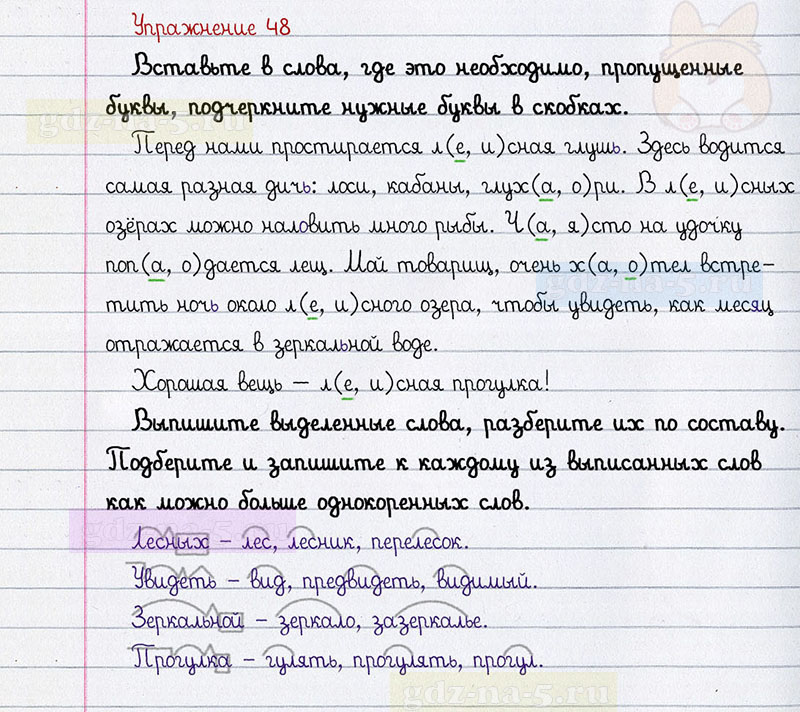 Упражнение 48
Вставьте в слова, где это необходимо, пропущенные
буквы, подчеркните нужные буквы в скобках.
gdz-na-5.ru
Перед нами простирается л(е, и)сная глушь. Здесь водится
самая разная дичь: лоси, кабаны, глух(а, о)ри. В л(е, и)сных
озёрах можно наловить много рыбы. Ч(а, я)сто на удочку
поп(а, о)дается лещ. Мой товарищ, очень х(а, о)тел встре-
gdz-na-5.ru
тить ночь около л(е, и)сного озера, чтобы увидеть, как месяц
отражается в зеркальной воде.
Хорошая вещь – л(е, и)сная прогулка!
Выпишите выделенные слова, разберите их по составу.
Подберите и запишите к каждому из выписанных слов
как можно больше однокоренных слов.
gdz-na-5.ru
Лесных – лес, лесник, перелесок.
Увидеть – вид, предвидеть, видимый.
Зеркальной – зеркало, зазеркалье.
Прогулка – гулять, прогулять, прогул.
gdz-na-5.ru